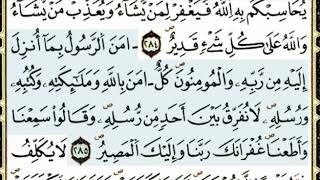 يُحَاسِبْكُم بِهِ اللَّهُ فَيَغْفِرْ لِمَنْ يَّشَآءُ وَيُعَذِّبْ مَنْ يَّشَآءُ
وَاللَّهُ عَلَىٰ كُلِّ شَےْءٍ قَدِيرٌ ٢٨٤ ءَامَنَ الرَّسُولُ بِمَآ أُنزِلَ
إِلَيْهِ مِن رَّبِّهِۦ وَالْمُومِنُونَ كُلٌّ ـ امَنَ بِاللَّهِ وَمَلَٰٓئِكَتِهِۦ وَكُتُبِهِۦ
وَرُسُلِهِۦ لَا نُفَرِّقُ بَيْنَ أَحَدٍ مِّن رُّسُلِهِۦ وَقَالُوا سَمِعْنَا
وَأَطَعْنَا غُفْرَانَكَ رَبَّنَا وَإِلَيْكَ الْمَصِيرُ ٢٨٥ لَا يُكَلِّفُ